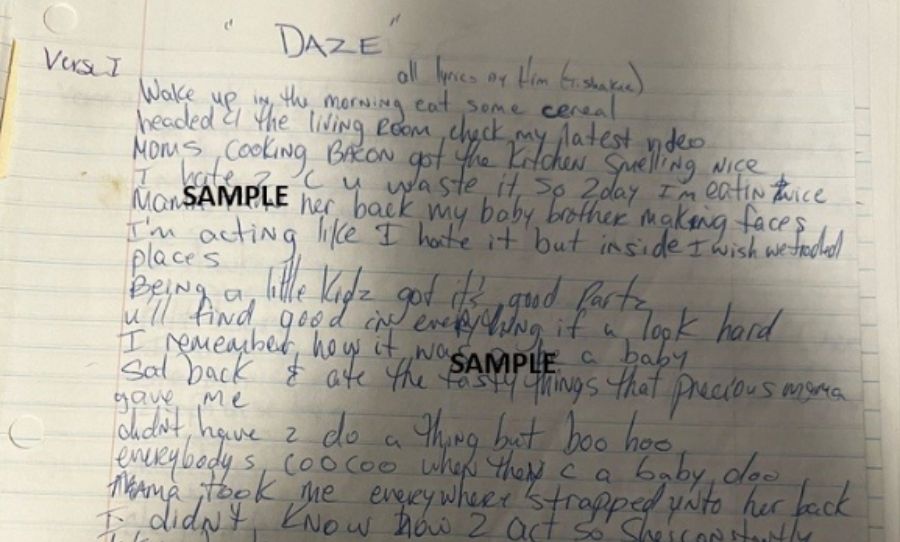 " DAZE "
Verse I
all lyrics by Him (T. Shakur)
Wake up in the morning eat some cereal
headed 4 the living Room check my latest video
Moms cooking BACON got the kitchen smelling nice
I hate 2 c u waste it so 2day I'm eatin twice
SAMPLE
Mama her back my baby brother making faces
I'm acting like I hate it but inside I wish we traded
places
Being a little Kidz got it's good Partz
u'll find good in everything if u look hard
I remember how it was a baby
SAMPLE
Sat back & ate the tasty things that precious mama
gave me
didn't have 2 do a thing but boo hoo
everybody's coocoo when they c a baby doo
MAMA took me everywhere strapped unto her back
I didn't know how 2 act so she's constantly